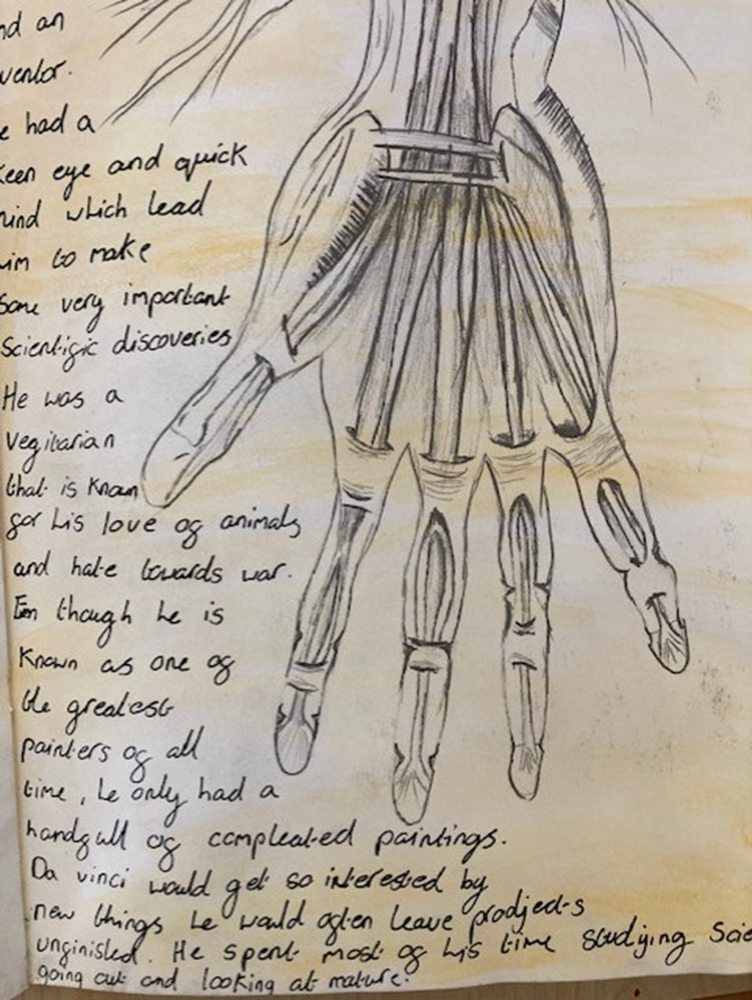 nd an
ventor.
e had a
keen eye and quick
mind which lead
im to make
Some very important
Scientific discoveries
He was a
vegitarian
that is known
for his love of animals
and hate towards war.
Een though he is
known as one of
the greatest
painters of all
time, he only had a
handfull of compleated paintings.
Da vinci would get so interested by
new things he would often leave prodjects
unfinished. He spent most of his time studying Scie
going out and looking at mature.